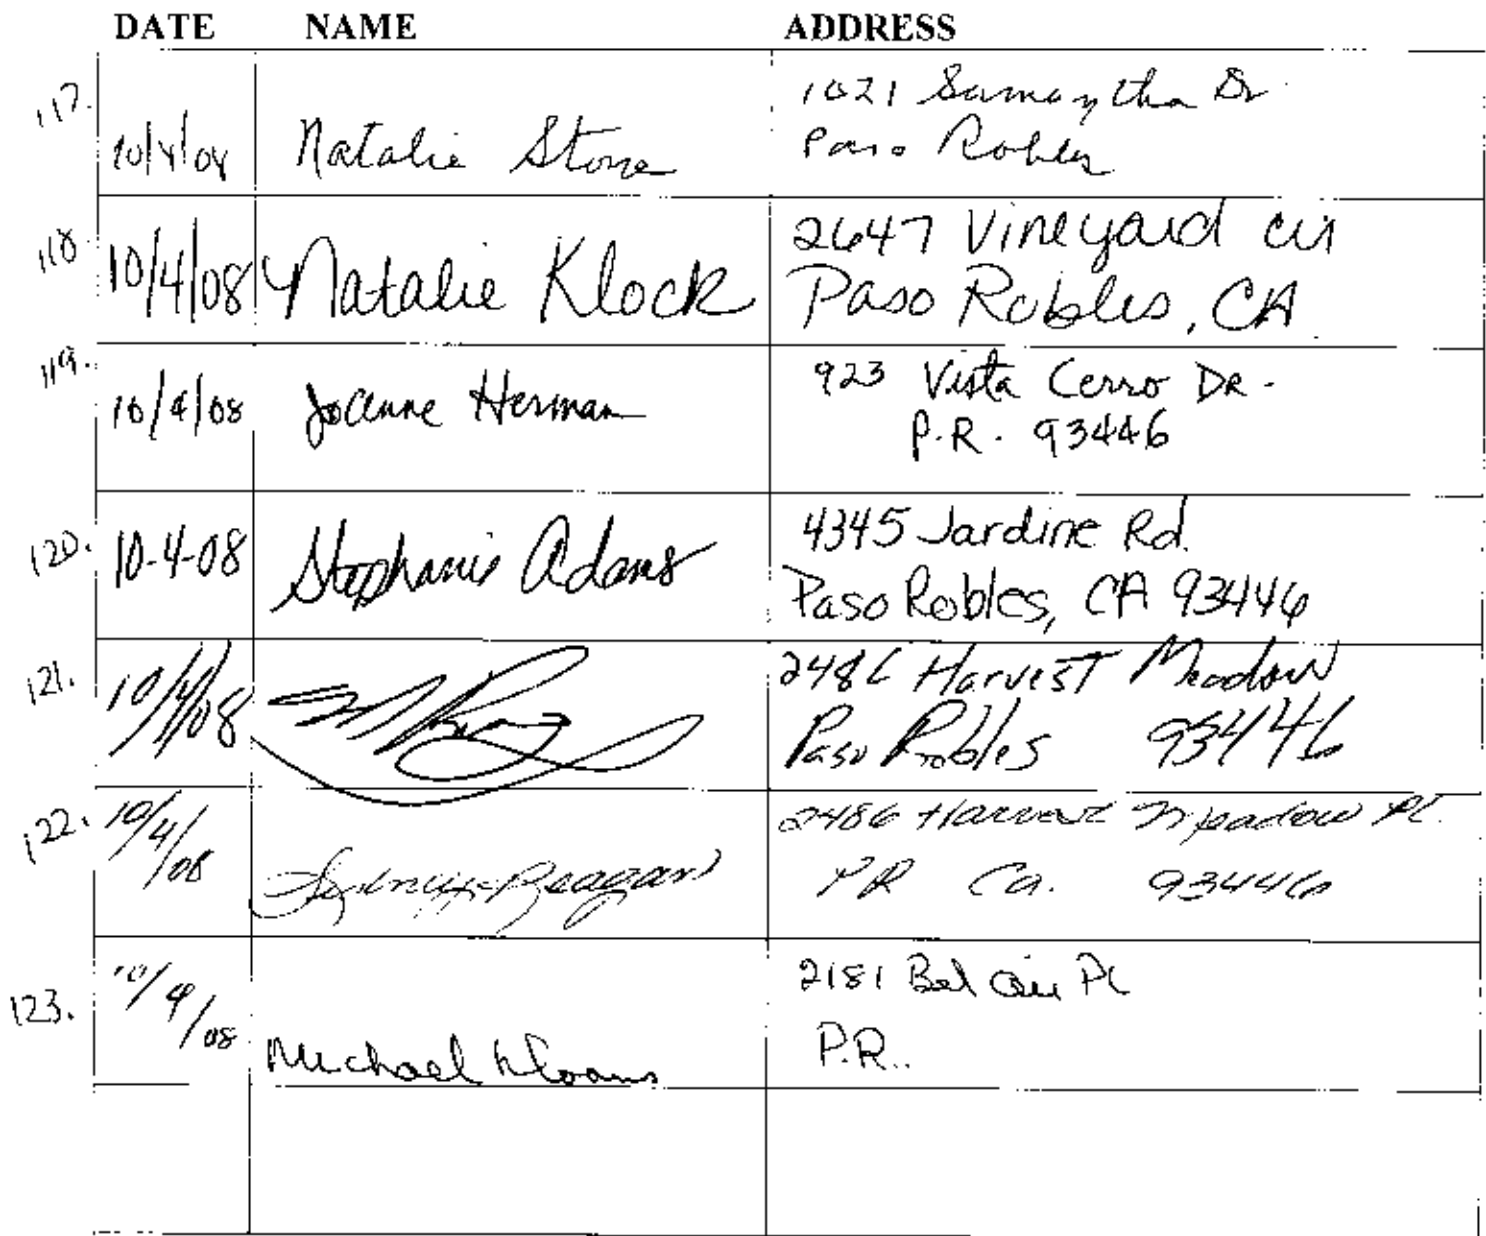 DATE NAME ADDRESS
117.
10/4/08 Natalie Stone
1021 Samantha Dr
Paso Robles
118.
10/4/08 Natalie Klock
2647 Vineyard cir
Paso Robles, CA
119.
10/4/08 Joanne Herman
923 Vista Cerro DR.
P.R. 93446
120.
10-4-08 Stephanie Adams
4345 Jardine Rd.
Paso Robles, CA 93446
121.
10/4/08
2486 Harvest Meadow
Paso Robles 93446
122.
10/4/08 Reagan
2486 Harvest Meadow Pl.
PR Ca. 93446
123.
10/4/08 Michael
2181 Bel Air Pl
P.R.